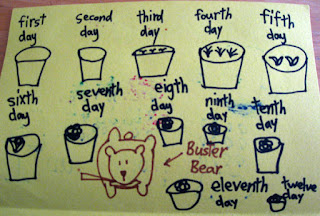 first day
second day
third day
fourth day
fifth day
sixth day
seventh day
eigth day
ninth day
tenth day
Buster Bear
eleventh day
twelve day